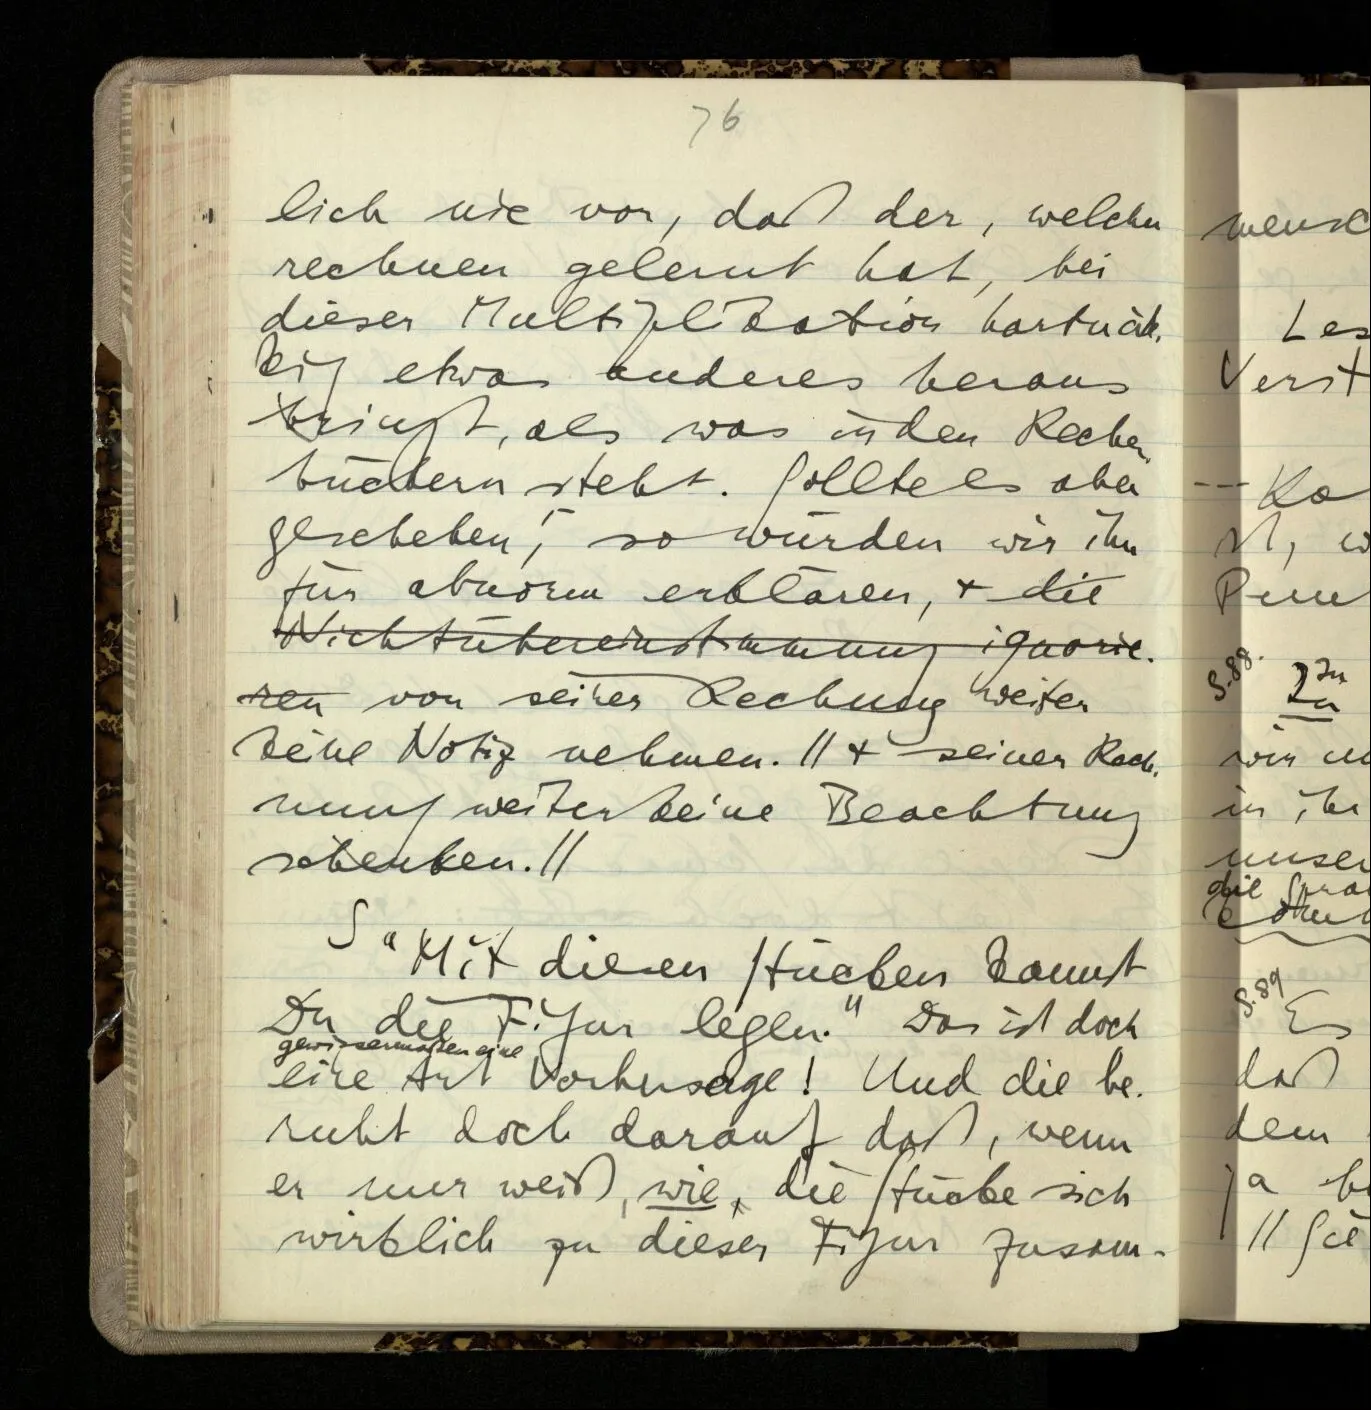 76
lich nie vor, daß der, welcher
rechnen gelernt hat, bei
dieser Multiplikation hartnäk-
kig etwas anderes heraus
bringt, als was in den Rechen-
büchern steht. Sollte es aber
geschehen, so würden wir ihn
für abnorm erklären, + die
Nichtübereinstimmung ignorie-
ren von seiner Rechnung weiter
keine Notiz nehmen. // + seiner Rech-
nung weiter keine Beachtung
schenken. //
S "Mit diesen Stücken kannst
Du die Figur legen." Das ist doch
gewissermaßen eine
eine Art Vorhersage! Und die be-
ruht doch darauf daß, wenn
er nur weiß, wie, die Stücke sich
wirklich zu dieser Figur zusam-
mensc
Les
Verst
--- Ka
ist, w
Punk
S. 88.
Zu
wir un
in ihr
unser
die Spra
S. 89
Es
daß
dem
ja b
// Sie